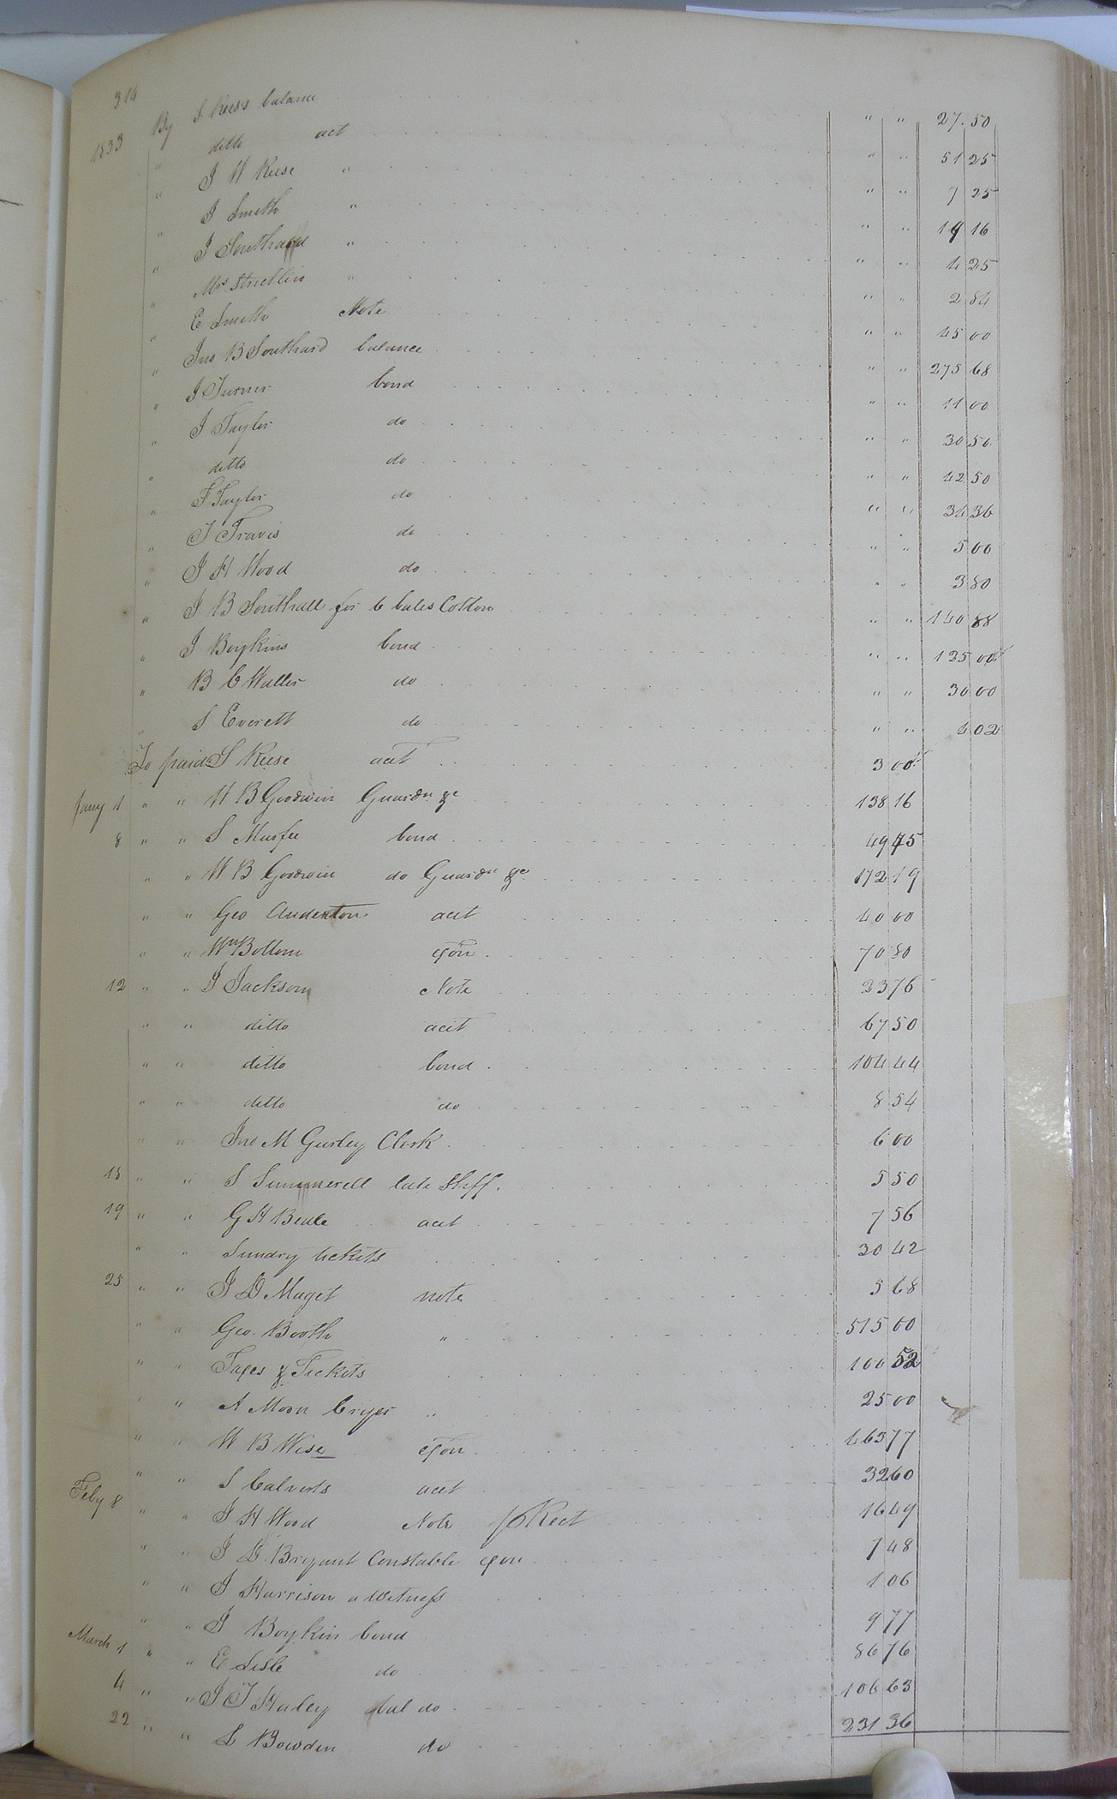 314
1833 By S Reese balance " " 27.50
" ditto act " " 51 25
" J W Reese " " " 7 25
" J Smith " " " 19 16
" J Southard " " " 4 25
" Mrs Stricklin " " " 2 84
" E Smith Note " " 45 00
" Jno B Southard balance " " 275 68
" J Turner bond " " 11 00
" J Taylor do " " 30 50
" ditto do " " 42 50
" F Taylor do " " 34 36
" J Travis do " " 5 00
" J H Wood do " " 3 80
" J B Southall for 6 bales Cotton " " 140 88
" J Boykins bond " " 125 00
" B C Waller do " " 30 00
" S Everett do " " 4 02
To paid S Reese act 3 00
Jany 1 " " W B Goodwin Guardn &c 138 16
8 " " S Murfee bond 49 45
" " W B Goodwin do Guardn &c 172 19
" " Geo Anderton act 40 00
" " Wm Bottom exon 70 80
12 " " J Jackson Note 23 76
" " ditto act 67 50
" " ditto bond 104 44
" " ditto do 8 54
" " Jno M Gurley Clerk 6 00
15 " " S Summerell late Shff. 5 50
19 " " G H Beale act 7 56
" " Sundry tickets 30 42
25 " " J D Maget note 5 68
" " Geo. Booth " 515 00
" " Taxes & Tickets 100 52
" " A Moon Cryer " 25 00
" " W B Wise exon 465 77
" " S Calverts act 32 60
Feby 8 " " J H Wood Note p Rect 16 49
" " J D Bryant Constable exon 7 48
" " J Harrison a Witness 1 06
" " J Boykin bond 9 77
March 1 " " E Lisle do 86 76
4 " " J T Haley bal do 106 63
22 " " L Bowden do 231 36